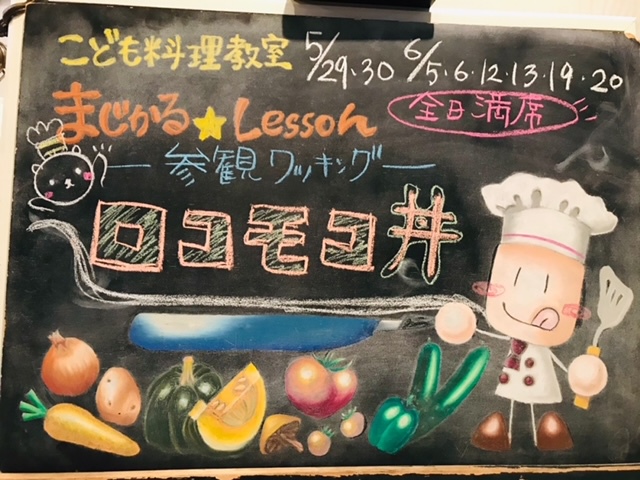 こども料理教室
5/29・30 6/5・6・12・13・19・20
まじかる★Lesson
全日満席
―参観クッキング―
ロコモコ丼